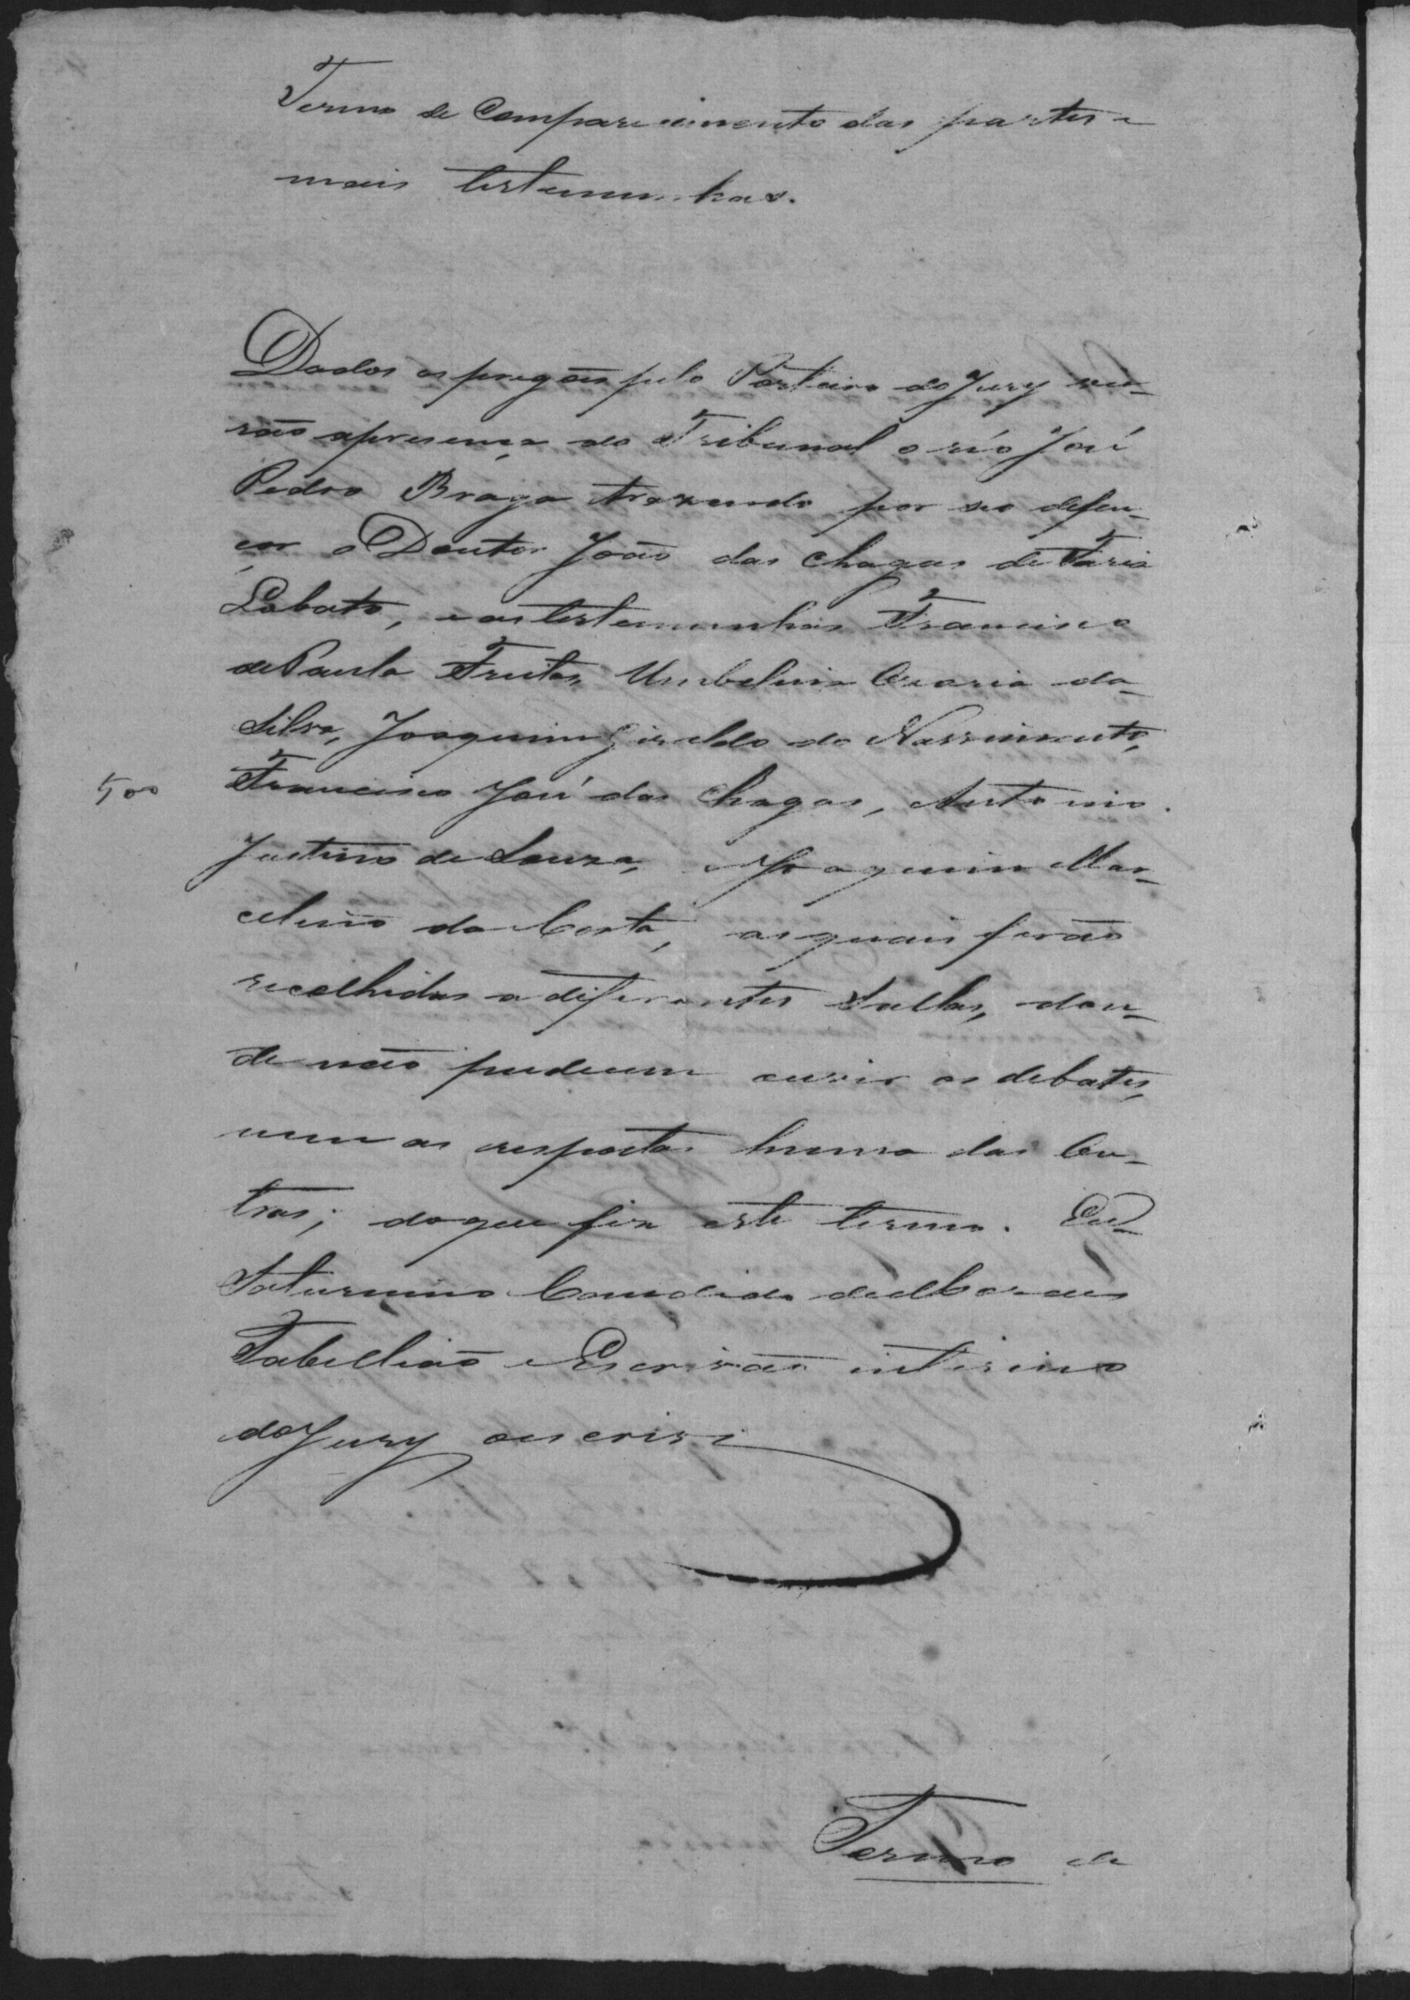 Termo de Comparecimento das partes e
mais testemunhas.
Dados os pregões pelo Porteiro do Jury vie-
rão apresença do Tribunal o réo José
Pedro Braga trazendo por seo defen-
çor o Doutor João das Chagas de Faria
Lobato, e as testemunhas Francisco
de Paula Freitas, Umbelina Maria da
Silva, Joaquim Giraldo do Nascimento,
500
Francisco José das Chagas, Antonio
Justino de Souza, e Joaquim Mar-
celino da Costa, as quais forão
recolhidas a diferentes Sallas, don-
de não pudeem ouvir os debates,
nem as respostas humas das Ou-
tras; do que fiz este termo. Eu
Saturnino Candido de Moraes
Tabellião e Escrivão interino
do Jury o escrivi
Termo de